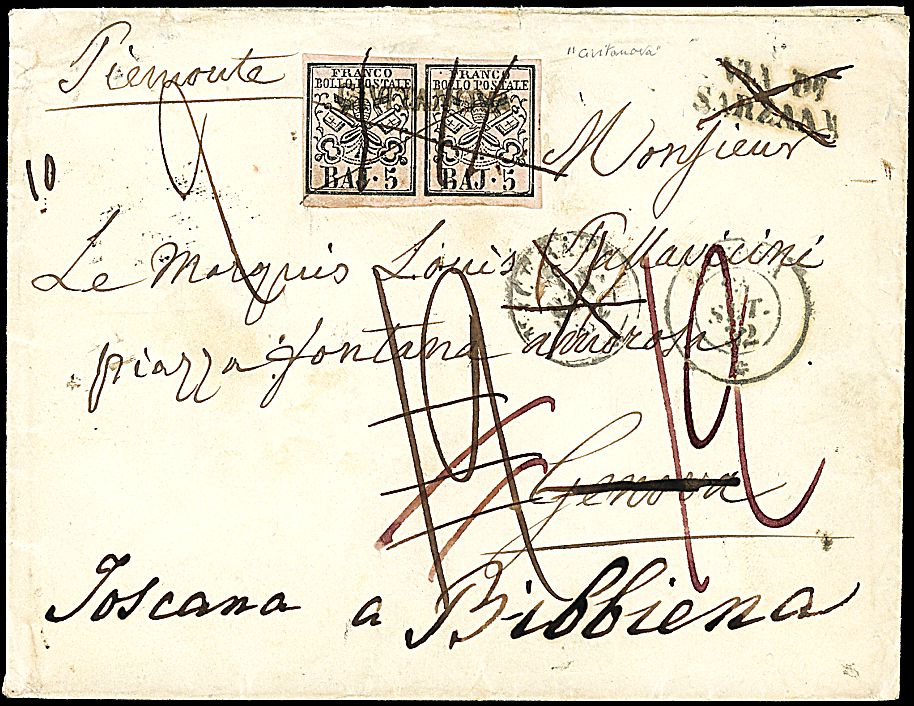 Piemonte
"Civitanova"
FRANCO
BOLLO POSTALE
BAJ·5
FRANCO
BOLLO POSTALE
BAJ·5
VIA DI
SARZANA
10
Monsieur
Le Marquis Louis Pallavicini
piazza fontana amorosa
SET.
22
Genova
Toscana a Bibbiena